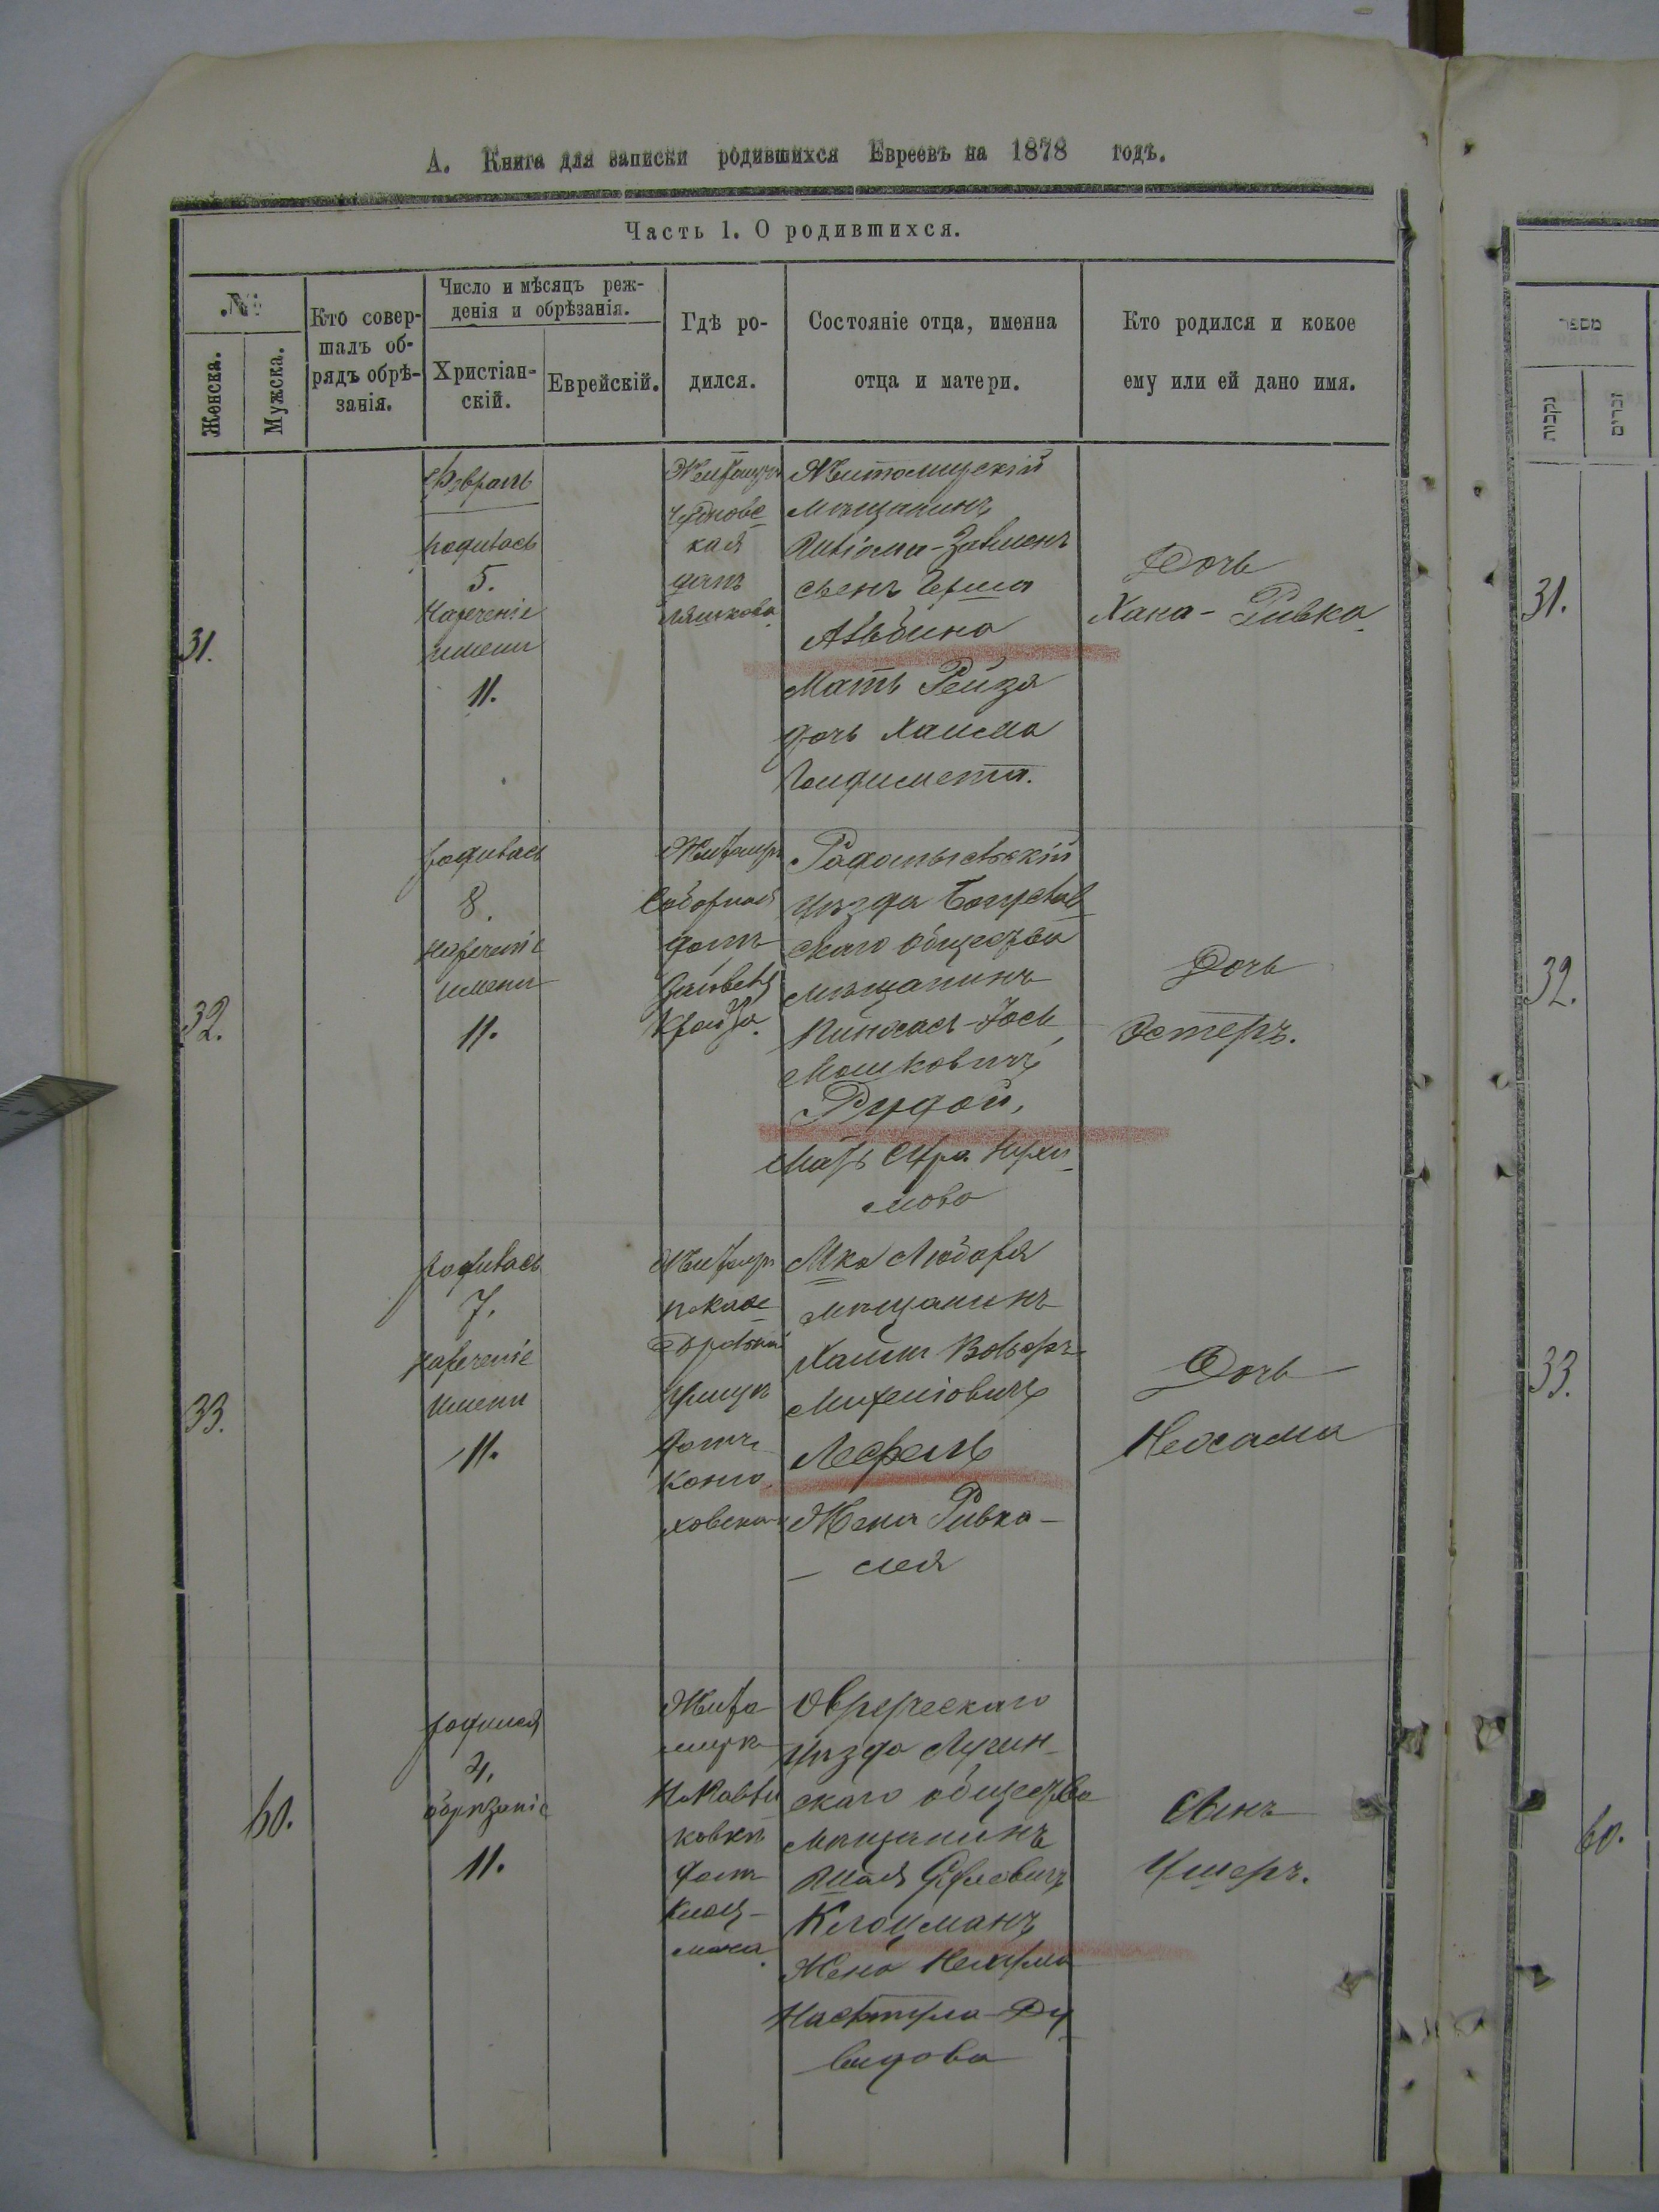 А. Книга для записки родившихся Евреевъ на 1878 годъ.
Часть 1. О родившихся.
№
Женска.
Мужска.
Кто совер-
шалъ об-
рядъ обрѣ-
занія.
Число и мѣсяцъ реж-
денія и обрѣзанія.
Христіан-
скій.
Еврейскій.
Гдѣ ро-
дился.
Состояніе отца, именна
отца и матери.
Кто родился и кокое
ему или ей дано имя.
מספר
נקבות
זכרים
31.
Февраль
родилась
5.
Нареченіе
имени
11.
Житомиръ
Чудновс
кая
домъ
Ляшкова
Житомирскій
мѣщанинъ
сынъ Герша
Альбина
Мать Рейзя
дочь Хаима
Дочь
Хана-Ривка
31.
32.
родилась
8.
нареченіе
имени
11.
Житомиръ
Соборная
домъ
Радомысльскій
уѣзда
скаго общества
мѣщанинъ
Пинхасъ-Іось
Мошковичъ
Рудой,
Мать Сура Нухи
мова
Дочь
Эстеръ.
32.
33.
родилась
7.
нареченіе
имени
11.
Житомиръ
по Кафе
дральной
улицѣ
домъ
ховской
Мка Любаря
мѣщанинъ
Хаимъ Вольфъ
Лефель
Жена Ривка-
- лея
Дочь
Нехама
33.
60.
родился
4.
обрѣзаніе
11.
Жито
миръ
ковкѣ
домъ
Клоц-
мана.
Овручскаго
уѣзда Лугин-
скаго общества
мѣщанинъ
Клоцманъ
Жена Нехума
видова
Сынъ
Ушеръ.
60.